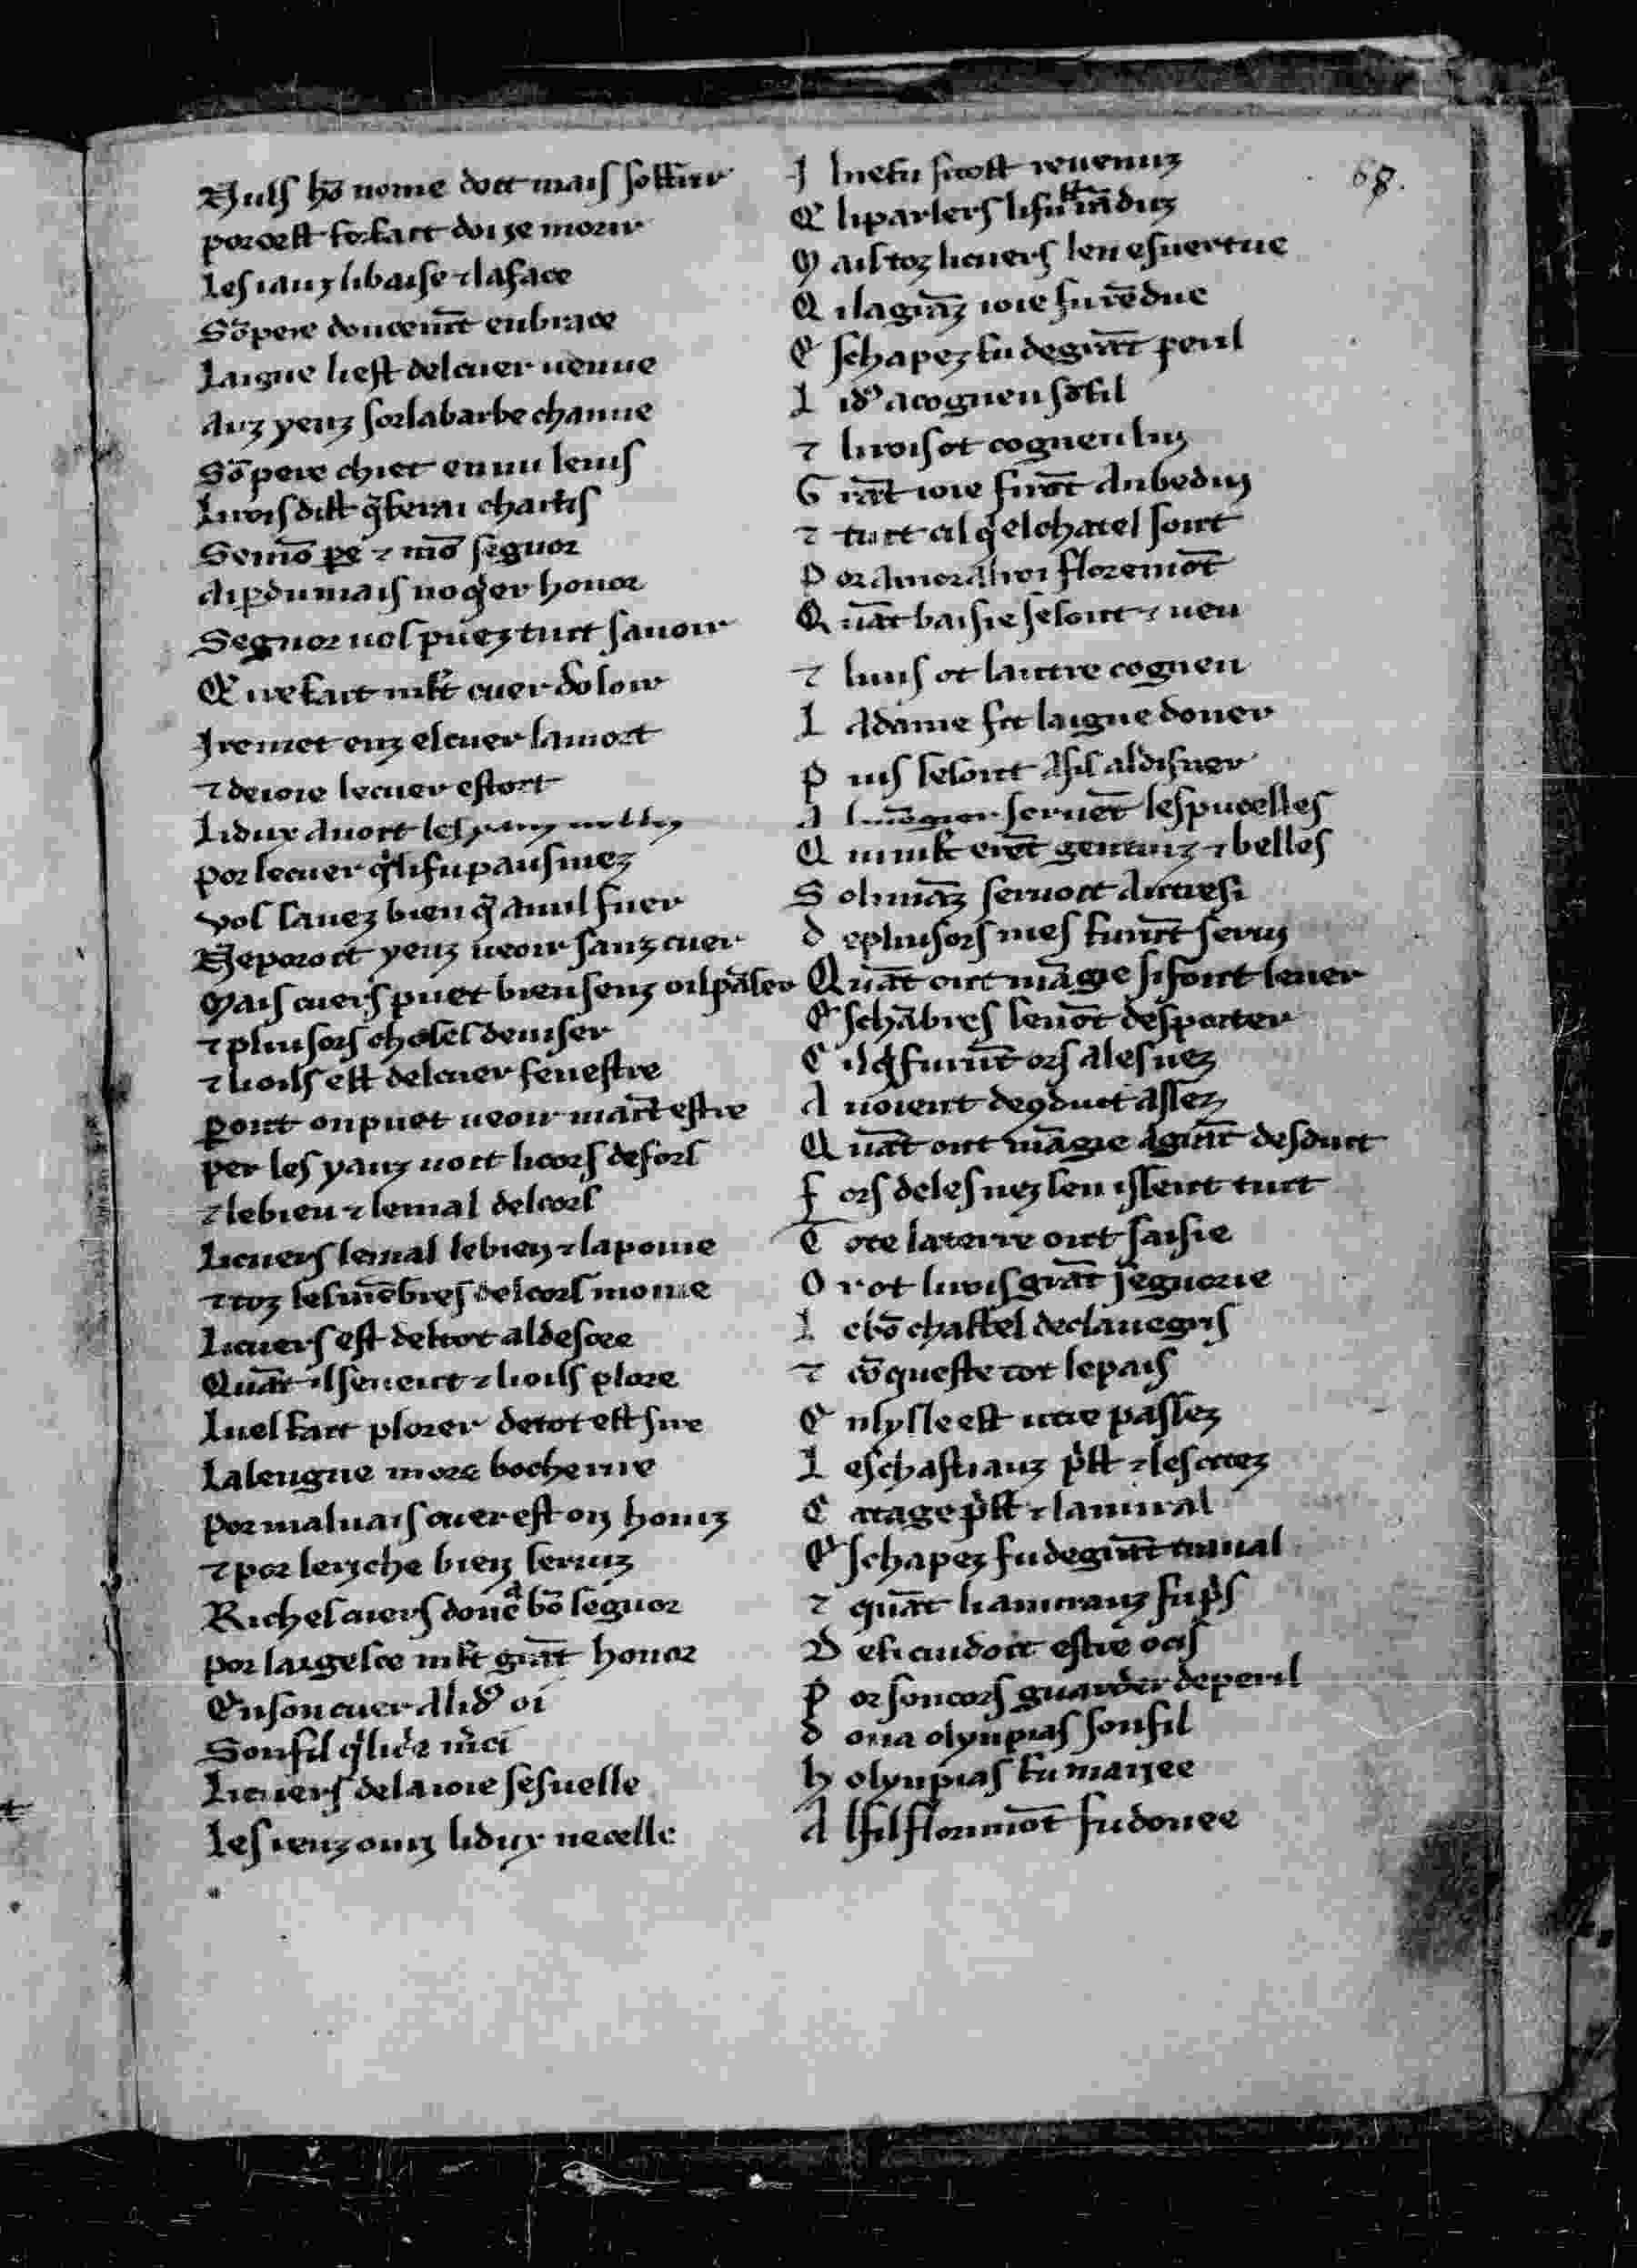 Nuls hō nome doit mais soffrir
por cest forfait doi ze morir
Les iauz li baise ⁊ la face
Sō pere doucemt̄ enbrace
Laigue li est del cuer uenue
Auz yeuz sor la barbe chanue
Sō pere chiet en mi le uis
Li rois dist q̄ ferai chaitis
Se mō pe ⁊ mō segnor
Ai pdu mais no q̄er honor
Segnor uos puez tuit sauoir
Que fait mlt̄ cuer doloir
Ire met enz el cuer la mort
⁊ de ioie le cuer estort
Li dux auoit les yauz
Por le cuer q̄ li fu pausmez
Vos sauez bien q̄ a nul fuer
Ne poroit yeuz ueoir sanz cuer
Mais cuers puet bien senz oil pāser
⁊ plusors choses deuiser
⁊ li oils est del cuer fenestre
Dont on puet ueoir maīt estre
Per les yauz uoit li cors defors
⁊ le bien ⁊ le mal del cors
Li cuers le mal le bien ⁊ la poine
⁊ toz les mēbres del cors moine
Li cuers est de tot al desore
Quāt il se uent ⁊ li oils plore
Luel fait plorer de tot est sire
La lengue more boche rire
Por maluais cuer est on honiz
⁊ por le riche bien seruiz
Riches cuers done a bō segnor
Por largesce mlt̄ grāt honor
En son cuer a li dꝰ oi
Son fil q̄ li crīe mc̄i
Li cuers de la ioie sesuelle
Les ieuz ouri li dux necelle
Il ne fu si tost reuenuz
Et li parlers li fu rēduz
Mais toz li cuers sen esuertue
Qi la grāz ioie fu rēdue
Eschapez fu de grāt peril
Li dꝰ a cogneu sō fil
⁊ li rois ot cogneu lui
Grāt ioie firōt anbedui
⁊ tuit cil q̄ el chatel sont
Por amor al roi floremōt
Quāt baisie se sont ⁊ ueu
⁊ luns ot lautre cogneu
La dame fit laigue doner
Puis sesont asis al disner
Al māgier seruēt les pucelles
Qui mlt erēt gentiuz ⁊ belles
Solimāz seruoit autresi
De plusors mes furūt serui
Quāt ont māgie si font leuer
Es chābres senōt desporter
Cil q̄ furūt ors a les nez
Auoient de 9duit assez
Quāt ont māgie a grāt desduit
Fors de les nez sen issent tuit
Tote la terre ont saisie
Or ot li rois grāt segnorie
Le bō chastel de clauegris
⁊ cō queste tot le pais
En lysle est utre passez
Les chastiauz p̄st ⁊ les citez
Catage p̄st ⁊ lamiral
Eschapez fu de grāt trauail
⁊ quāt li amirauz fu p̄s
Defi cuidoit estre ocis
Por son cors guarder de peril
Dona olynpias son fil
Holynpias fu mariee
Al fil florimōt fu donee
68.